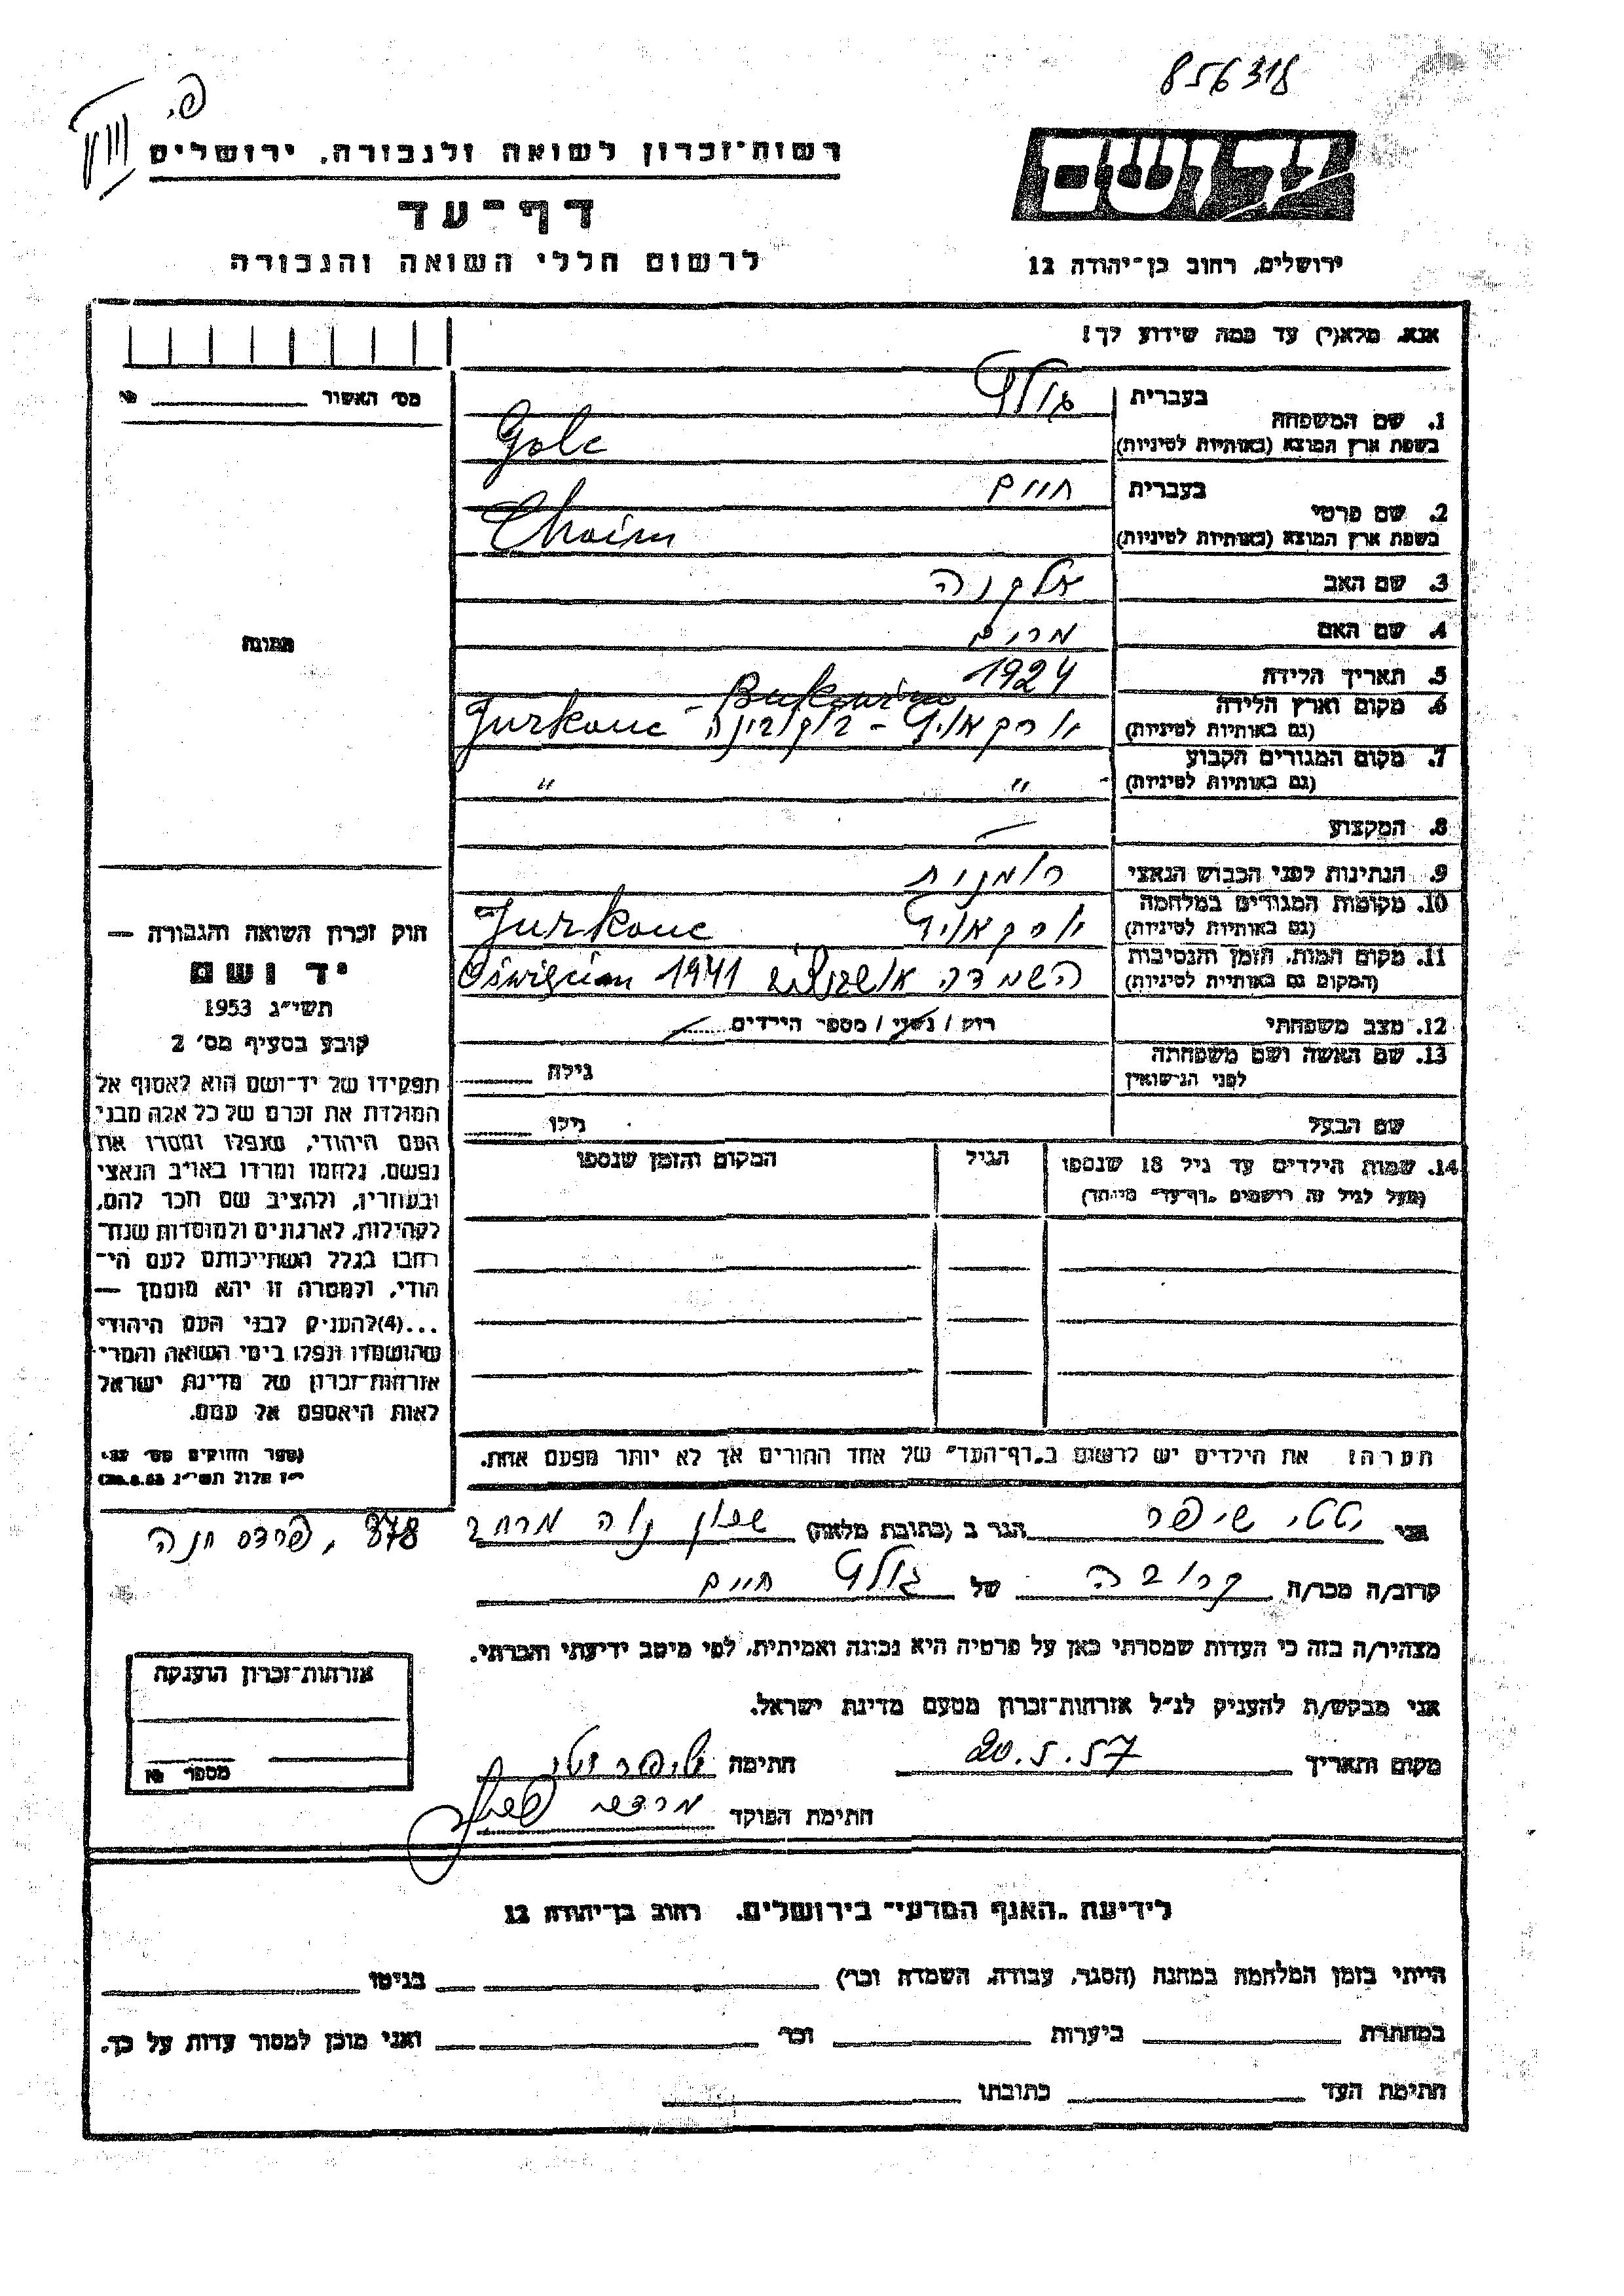 856318
פ.
רשות־זכרון לשואה ולגבורה. ירושלים
יד ושם
דף־עד
לרשום חללי השואה והגבורה
ירושלים, רחוב בן־יהודה 12
אנא, מלא(י) עד כמה שידוע לך!
מס' האשור № 
1. שם המשפחה
בעברית גולץ
בשפת ארץ המוצא (באותיות לטיניות) Golc
2. שם פרטי
בעברית חיים
בשפת ארץ המוצא (באותיות לטיניות) Chaim
3. שם האב אלקנה
4. שם האם מרים
5. תאריך הלידה 1924
6. מקום וארץ הלידה
(גם באותיות לטיניות) יורקאוץ - בוקובינה Jurkouc - Bukowina
7. מקום המגורים הקבוע
(גם באותיות לטיניות) " "
8. המקצוע —
9. הנתינות לפני הכבוש הנאצי רומנית
10. מקומות המגורים במלחמה
(גם באותיות לטיניות) יורקאוץ Jurkouc
11. מקום המות, הזמן והנסיבות
(המקום גם באותיות לטיניות) השמדה אושביץ 1941
12. מצב משפחתי רוק / נשוי / מספר הילדים
13. שם האשה ושם משפחתה
לפני הנישואין
גילה
שם הבעל גילו
14. שמות הילדים עד גיל 18 שנספו הגיל המקום והזמן שנספו
(מעל לגיל זה רושמים "דף־עד" מיוחד)
תמונה
חוק זכרון השואה והגבורה —
יד ושם
תשי"ג 1953
קובע בסעיף מס' 2
תפקידו של יד־ושם הוא לאסוף אל
המולדת את זכרם של כל אלה מבני
העם היהודי, שנפלו ומסרו את
נפשם, נלחמו ומרדו באויב הנאצי
ובעוזריו, ולהציב שם וזכר להם,
לקהילות, לארגונים ולמוסדות שנח־
רבו בגלל השתייכותם לעם הי־
הודי, ולמטרה זו יהא מוסמך —
...(4) להעניק לבני העם היהודי
שהושמדו ונפלו בימי השואה והמרי
אזרחות־זכרון של מדינת ישראל
לאות היאספם אל עמם.
הערה: את הילדים יש לרשום ב"דף־העד" של אחד ההורים אך לא יותר מפעם אחת.
אני יטטי שיפר הגר ב (כתובת מלאה) שכון נוה מרחב 378, פרדס חנה
קרוב/ה מכר/ה קרובה של גולץ חיים
מצהיר/ה בזה כי העדות שמסרתי כאן על פרטיה היא נכונה ואמיתית, לפי מיטב ידיעתי והכרתי.
אני מבקש/ת להעניק לנ"ל אזרחות־זכרון מטעם מדינת ישראל.
מקום ותאריך 20.5.57 חתימה שיפר יטי
חתימת הפוקד
אזרחות־זכרון הוענקה
מספר №
לידיעת "האגף המדעי" בירושלים. רחוב בן־יהודה 12
הייתי בזמן המלחמה במחנה (הסגר, עבודה, השמדה וכו') בגיטו
במחתרת ביערות וכו' ואני מוכן למסור עדות על כך.
חתימת העד כתובתו